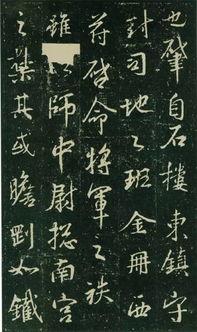 也肇自石樓東鎮守
封司地之班金冊西
苻啓命將軍之袟
雖師中尉揔南宮
之其或瞻劉如鐵